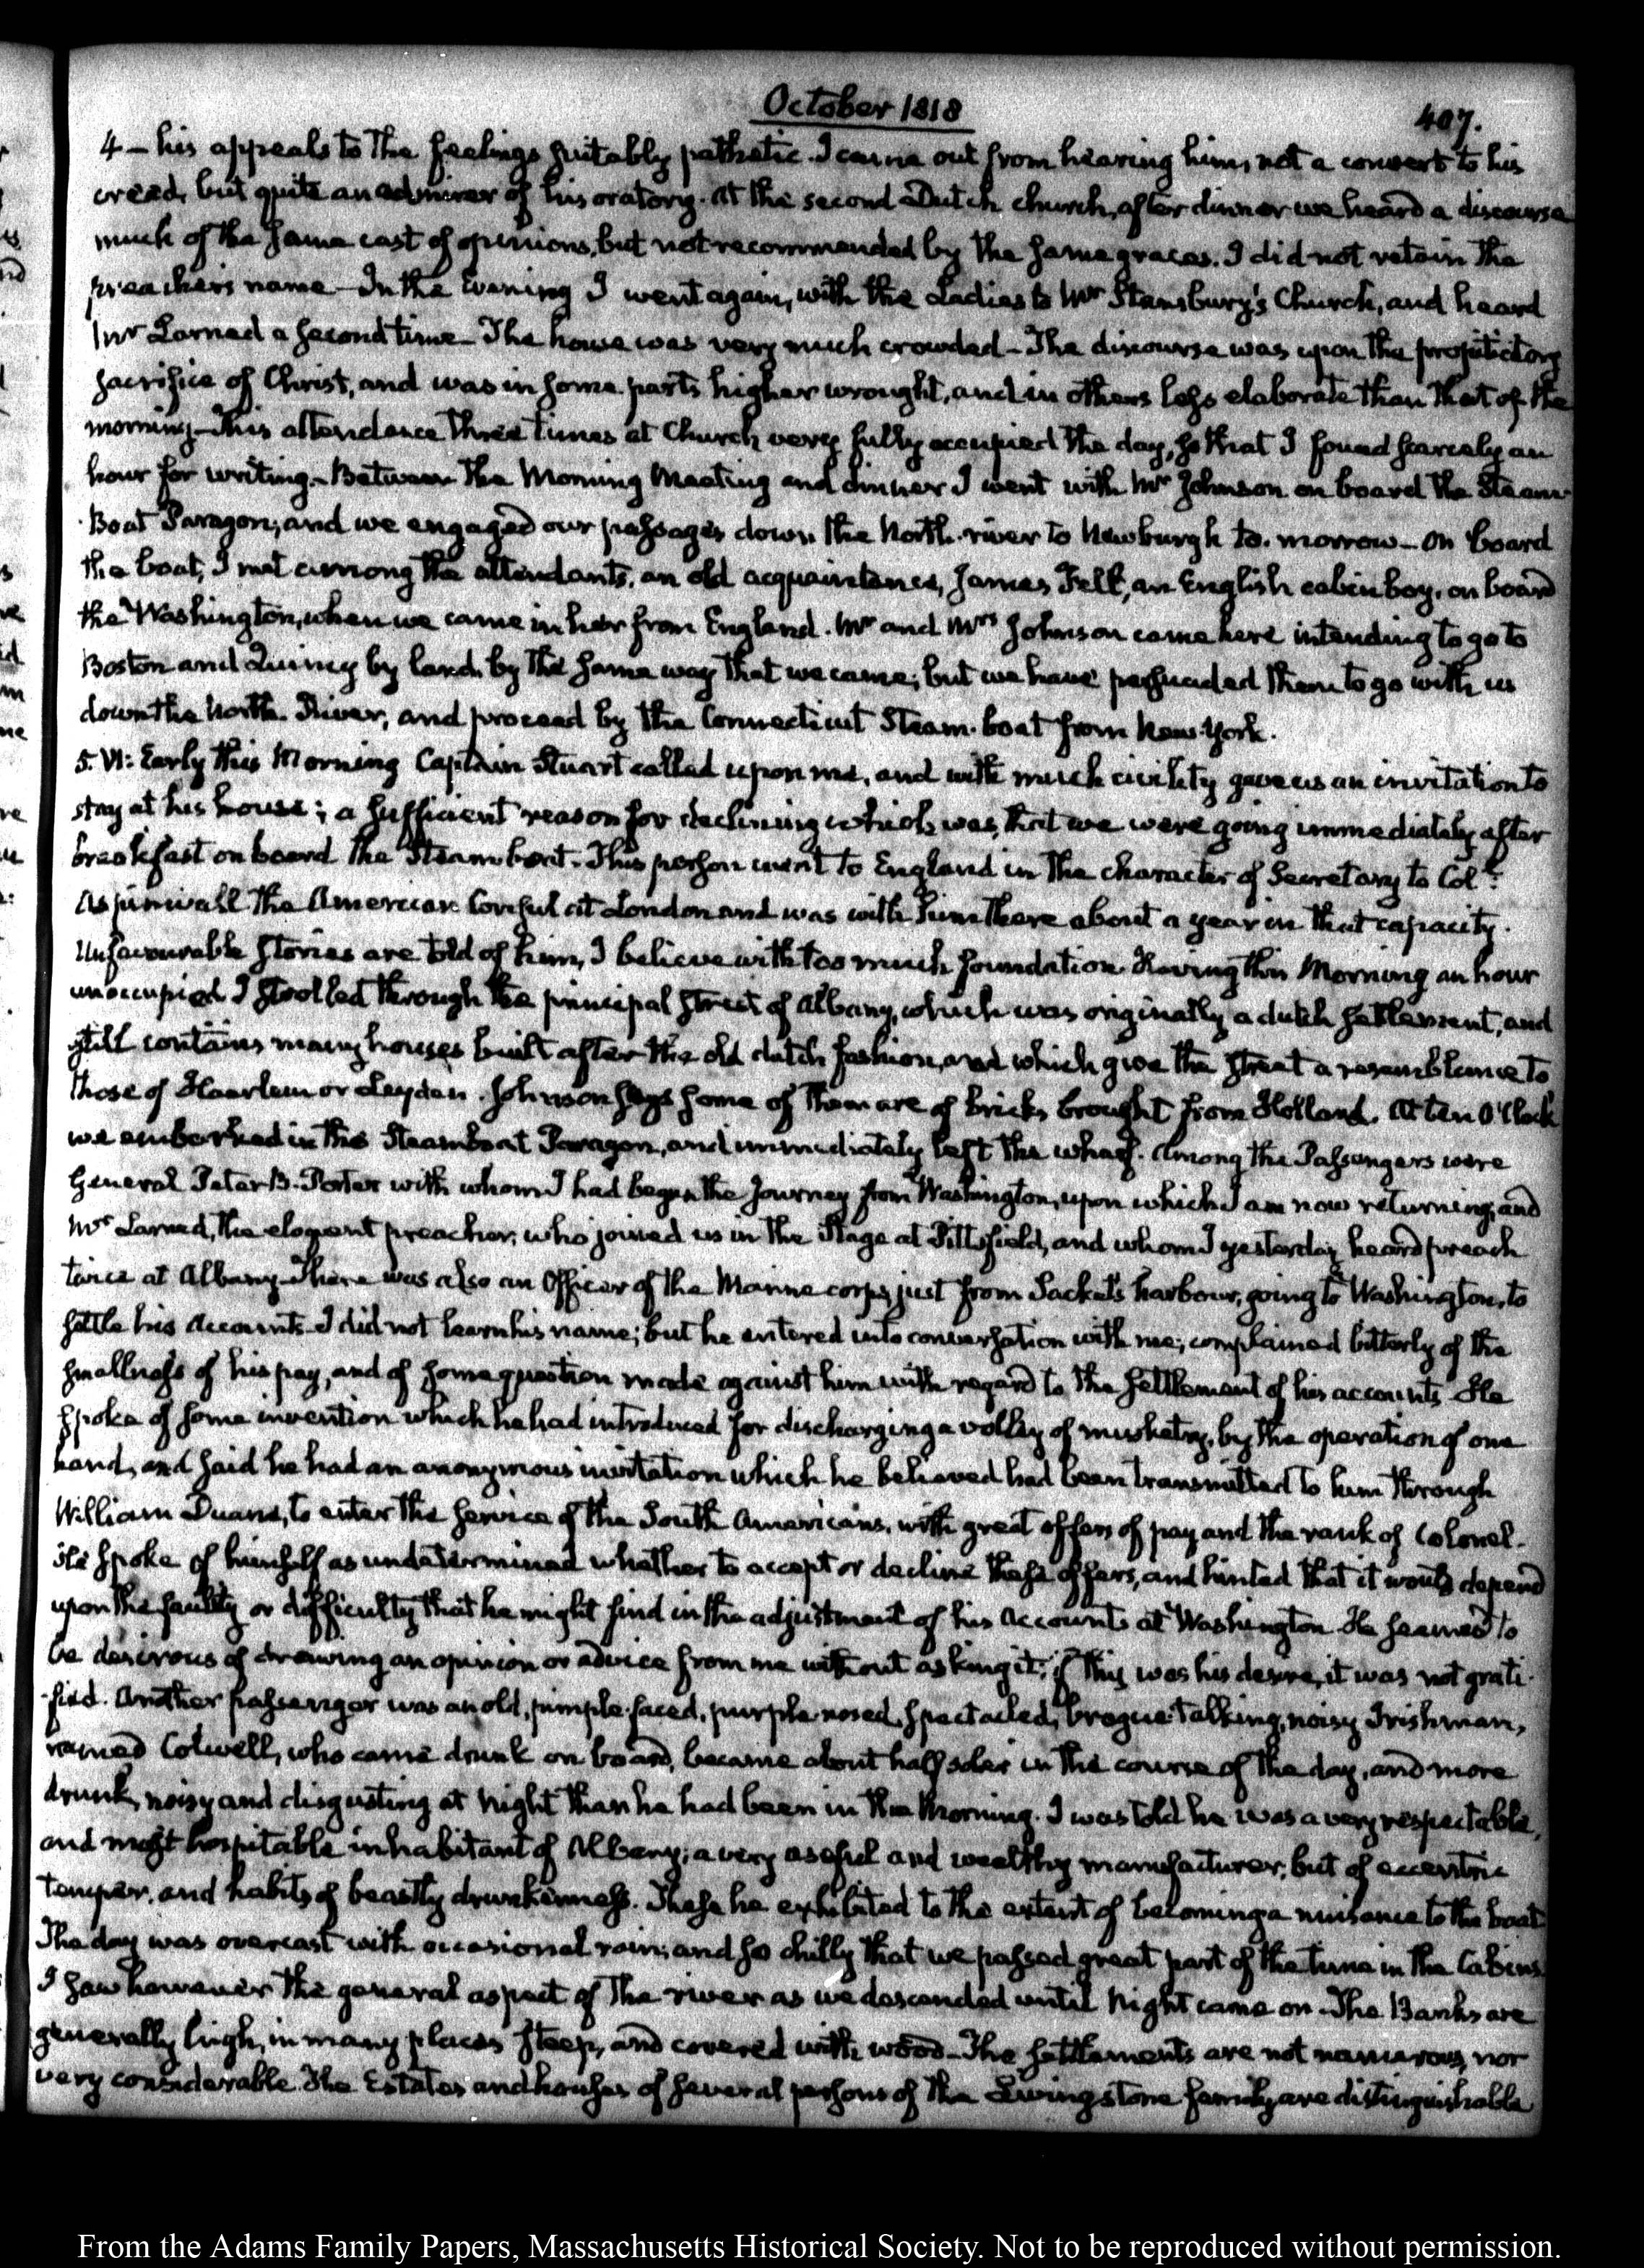 October 1818
407.
4 – his appeals to the feelings suitably pathetic. I came out from hearing him, not a convert to his
creed, but quite an admirer of his oratory. At the second Dutch church, after dinner we heard a discourse
much of the same cast of opinions, but not recommended by the same graces. I did not retain the
preacher's name – In the Evening I went again, with the Ladies to Mr Stansbury's Church, and heard
Mr Larned a second time – The house was very much crowded – The discourse was upon the propitiatory
sacrifice of Christ, and was in some parts higher wrought, and in others less elaborate than that of the
morning – This attendance three times at Church very fully occupied the day, so that I found scarcely an
hour for writing. – Between the Morning Meeting and dinner I went with Mr Johnson on board the Steam-
Boat Paragon; and we engaged our passages down the North-river to Newburgh to-morrow – On board
the boat, I met among the attendants, an old acquaintance, James Felt, an English cabin boy, on board
the Washington, when we came in her from England. Mr and Mrs Johnson came here intending to go to
Boston and Quincy by land, by the same way that we came; but we have persuaded them to go with us
down the North River, and proceed by the Connecticut Steam-boat from New-York.
5. VI: Early this Morning Captain Stuart called upon me, and with much civility gave us an invitation to
stay at his house; a sufficient reason for declining which was, that we were going immediately after
breakfast on board the Steam boat. This person went to England in the character of Secretary to Coll:
Aspinwall the American Consul at London and was with him there about a year in that capacity.
Unfavourable stories are told of him, I believe with too much foundation. Having this Morning an hour
unoccupied I strolled through the principal street of Albany, which was originally a dutch settlement, and
still contains many houses built after the old dutch fashion, and which give the street a resemblance to
those of Haarlem or Leyden. Johnson says some of them are of bricks brought from Holland. At ten O'Clock
we embarked in the Steamboat Paragon, and immediately left the wharf. Among the Passengers were
General Peter B. Porter with whom I had begun the journey from Washington, upon which I am now returning, and
Mr Larned, the eloquent preacher, who joined us in the Stage at Pittsfield, and whom I yesterday heard preach
twice at Albany. There was also an Officer of the Marine corps, just from Sacket's harbour, going to Washington, to
settle his Accounts – I did not learn his name; but he entered into conversation with me; complained bitterly of the
smallness of his pay, and of some question made against him with regard to the settlement of his accounts. He
spoke of some invention which he had introduced for discharging a volley of musketry, by the operation of one
hand, and said he had an anonymous invitation which he believed had been transmitted to him through
William Duane, to enter the service of the South Americans, with great offers of pay and the rank of Colonel.
He spoke of himself as undetermined whether to accept or decline these offers, and hinted that it would depend
upon the facility or difficulty that he might find in the adjustment of his Accounts at Washington. He seemed to
be desirous of drawing an opinion or advice from me without asking it; if this was his desire, it was not grati-
fied. Another passenger was an old, pimple-faced, purple nosed, spectacled, brogue-talking, noisy Irishman,
named Colwell, who came drunk on board, became about half sober in the course of the day, and more
drunk, noisy and disgusting at Night than he had been in the Morning. I was told he was a very respectable,
and most hospitable inhabitant of Albany; a very useful and wealthy manufacturer; but of eccentric
temper, and habits of beastly drunkenness. These he exhibited to the extent of becoming a nuisance to the boat
The day was overcast with occasional rain; and so chilly that we passed great part of the time in the Cabins
I saw however the general aspect of the river as we descended until Night came on – The Banks are
generally high, in many places steep, and covered with wood – The settlements are not numerous, nor
very considerable. The Estates and houses of several persons of the Livingstone family are distinguishable
From the Adams Family Papers, Massachusetts Historical Society. Not to be reproduced without permission.